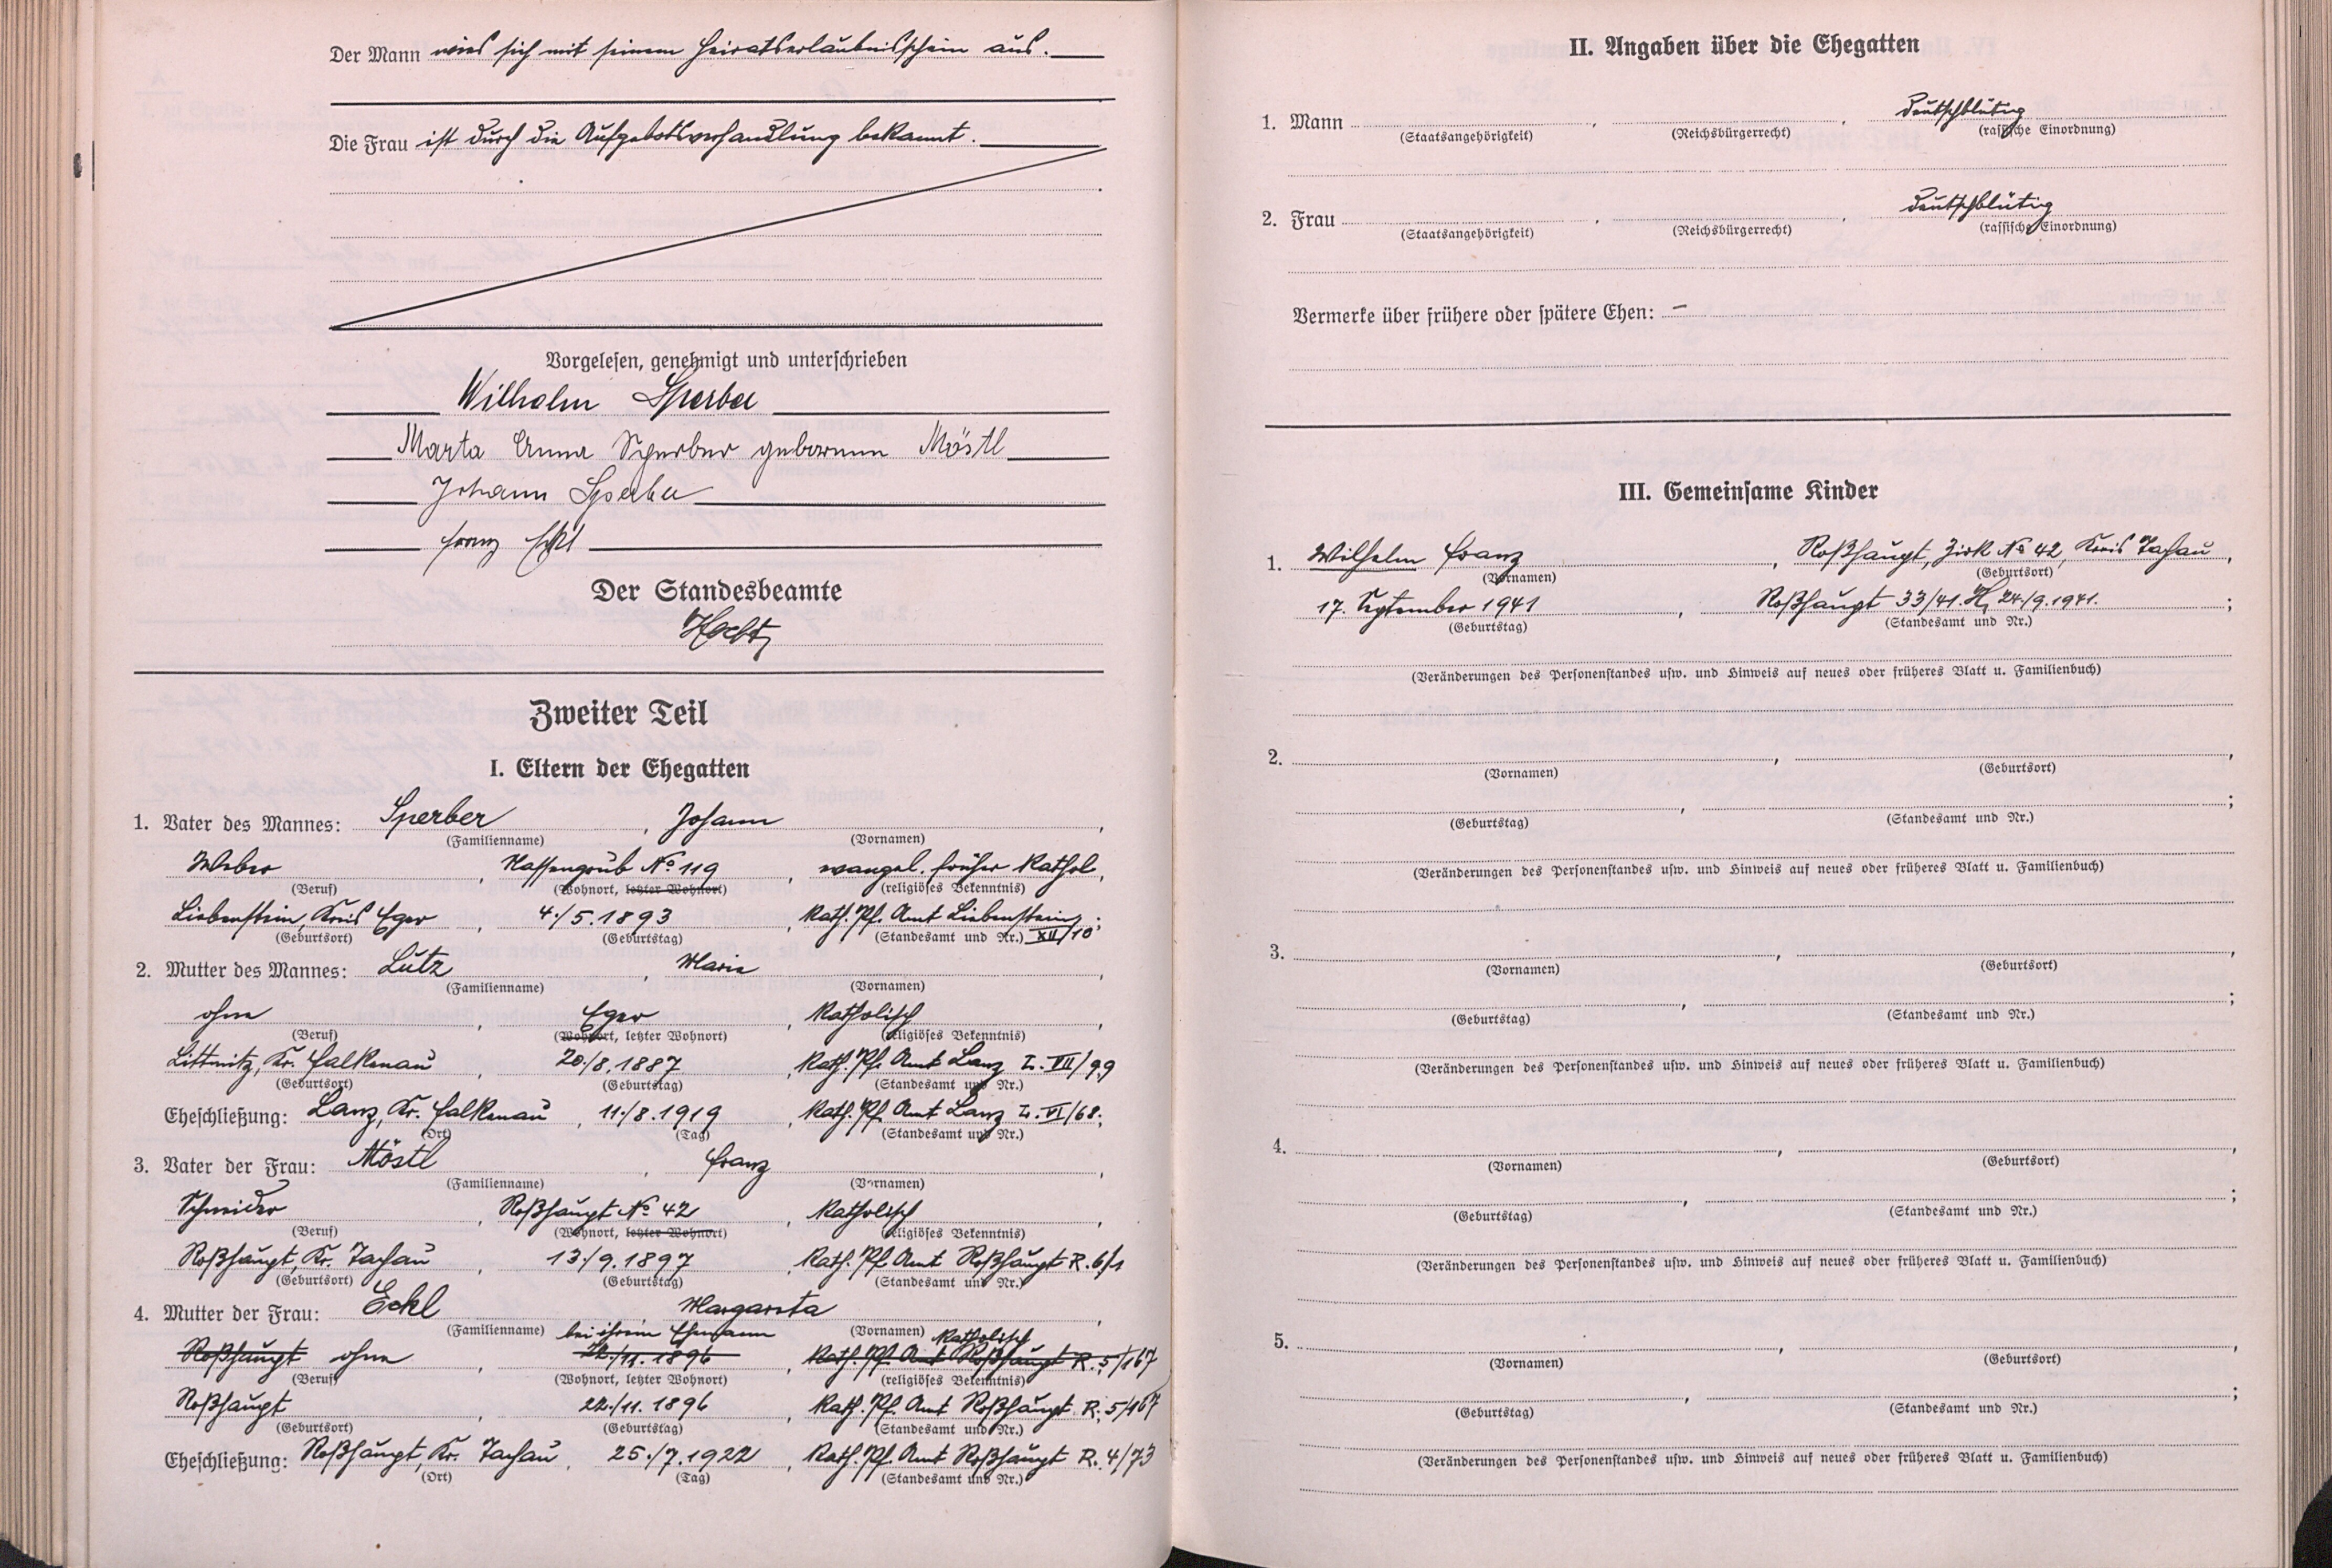 Der Mann wies sich mit seinem Heiratserlaubnisschein aus.
Die Frau ist durch die Aufgebotsverhandlung bekannt.
Vorgelesen, genehmigt und unterschrieben
Wilhelm Sperber
Marta Anna Sperber geborenen Möstl
Johann Sperber
Franz Eckl
Der Standesbeamte
Zweiter Teil
I. Eltern der Ehegatten
1. Vater des Mannes: Sperber, Johann,
(Familienname) (Vornamen)
Weber, Hassengrub No 119, evangel. früher Kathol,
(Beruf) (Wohnort, letzter Wohnort) (religiöses Bekenntnis)
Liebenstein, Kreis Eger, 4./5.1893, Kath. Pf. Amt Liebenstein XII/10;
(Geburtsort) (Geburtstag) (Standesamt und Nr.)
2. Mutter des Mannes: Lutz, Maria,
(Familienname) (Vornamen)
ohne, Eger, Katholisch,
(Beruf) (Wohnort, letzter Wohnort) (religiöses Bekenntnis)
Littmitz, Kr. Falkenau, 20./8.1887, Kath. Pf. Amt Lanz L. VII/99
(Geburtsort) (Geburtstag) (Standesamt und Nr.)
Eheschließung: Lanz, Kr. Falkenau, 11./8.1919, Kath. Pf. Amt Lanz L. VI/68.
(Ort) (Tag) (Standesamt und Nr.)
3. Vater der Frau: Möstl, Franz,
(Familienname) (Vornamen)
Schneider, Roßhaupt No 42, Katholisch,
(Beruf) (Wohnort, letzter Wohnort) (religiöses Bekenntnis)
Roßhaupt, Kr. Tachau, 13./9.1897, Kath. Pf. Amt Roßhaupt R. 6/1
(Geburtsort) (Geburtstag) (Standesamt und Nr.)
4. Mutter der Frau: Eckl Margareta,
(Familienname) bei ihrem Ehemann (Vornamen) Katholisch
Roßhaupt ohne, 22./11.1896, Kath. Pf. Amt Roßhaupt R. 5/167
(Beruf) (Wohnort, letzter Wohnort) (religiöses Bekenntnis)
Roßhaupt, 22./11.1896, Kath. Pf. Amt Roßhaupt R. 5/167
(Geburtsort) (Geburtstag) (Standesamt und Nr.)
Eheschließung: Roßhaupt, Kr. Tachau, 25./7.1922, Kath. Pf. Amt Roßhaupt R. 4/73
(Ort) (Tag) (Standesamt und Nr.)
II. Angaben über die Ehegatten
1. Mann , , deutschblütig
(Staatsangehörigkeit) (Reichsbürgerrecht) (rassische Einordnung)
2. Frau , , deutschblütig
(Staatsangehörigkeit) (Reichsbürgerrecht) (rassische Einordnung)
Vermerke über frühere oder spätere Ehen: –
III. Gemeinsame Kinder
1. Wilhelm Franz, Roßhaupt, No 42, Kreis Tachau,
(Vornamen) (Geburtsort)
17. September 1941, Roßhaupt 33/41. 24./9.1941.;
(Geburtstag) (Standesamt und Nr.)
(Veränderungen des Personenstandes usw. und Hinweis auf neues oder früheres Blatt u. Familienbuch)
2. , ,
(Vornamen) (Geburtsort)
, ;
(Geburtstag) (Standesamt und Nr.)
(Veränderungen des Personenstandes usw. und Hinweis auf neues oder früheres Blatt u. Familienbuch)
3. , ,
(Vornamen) (Geburtsort)
, ;
(Geburtstag) (Standesamt und Nr.)
(Veränderungen des Personenstandes usw. und Hinweis auf neues oder früheres Blatt u. Familienbuch)
4. , ,
(Vornamen) (Geburtsort)
, ;
(Geburtstag) (Standesamt und Nr.)
(Veränderungen des Personenstandes usw. und Hinweis auf neues oder früheres Blatt u. Familienbuch)
5. , ,
(Vornamen) (Geburtsort)
, ;
(Geburtstag) (Standesamt und Nr.)
(Veränderungen des Personenstandes usw. und Hinweis auf neues oder früheres Blatt u. Familienbuch)